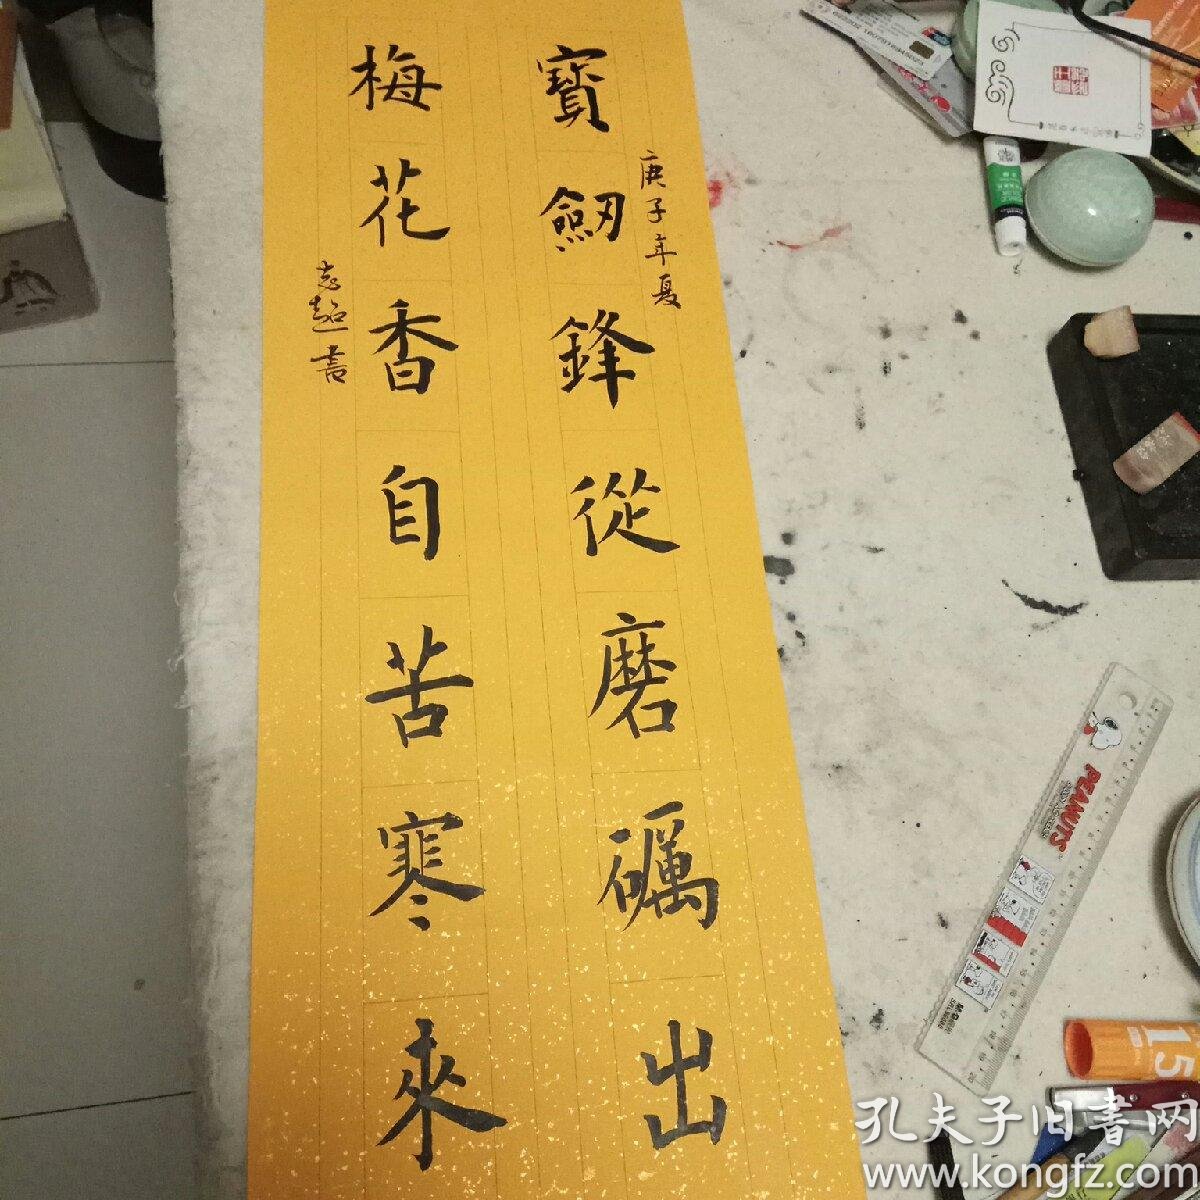 庚子年夏
寶劒鋒從磨礪出
梅花香自苦寒來
志超書
PEANUTS
15
孔夫子旧书网
www.kongfz.com